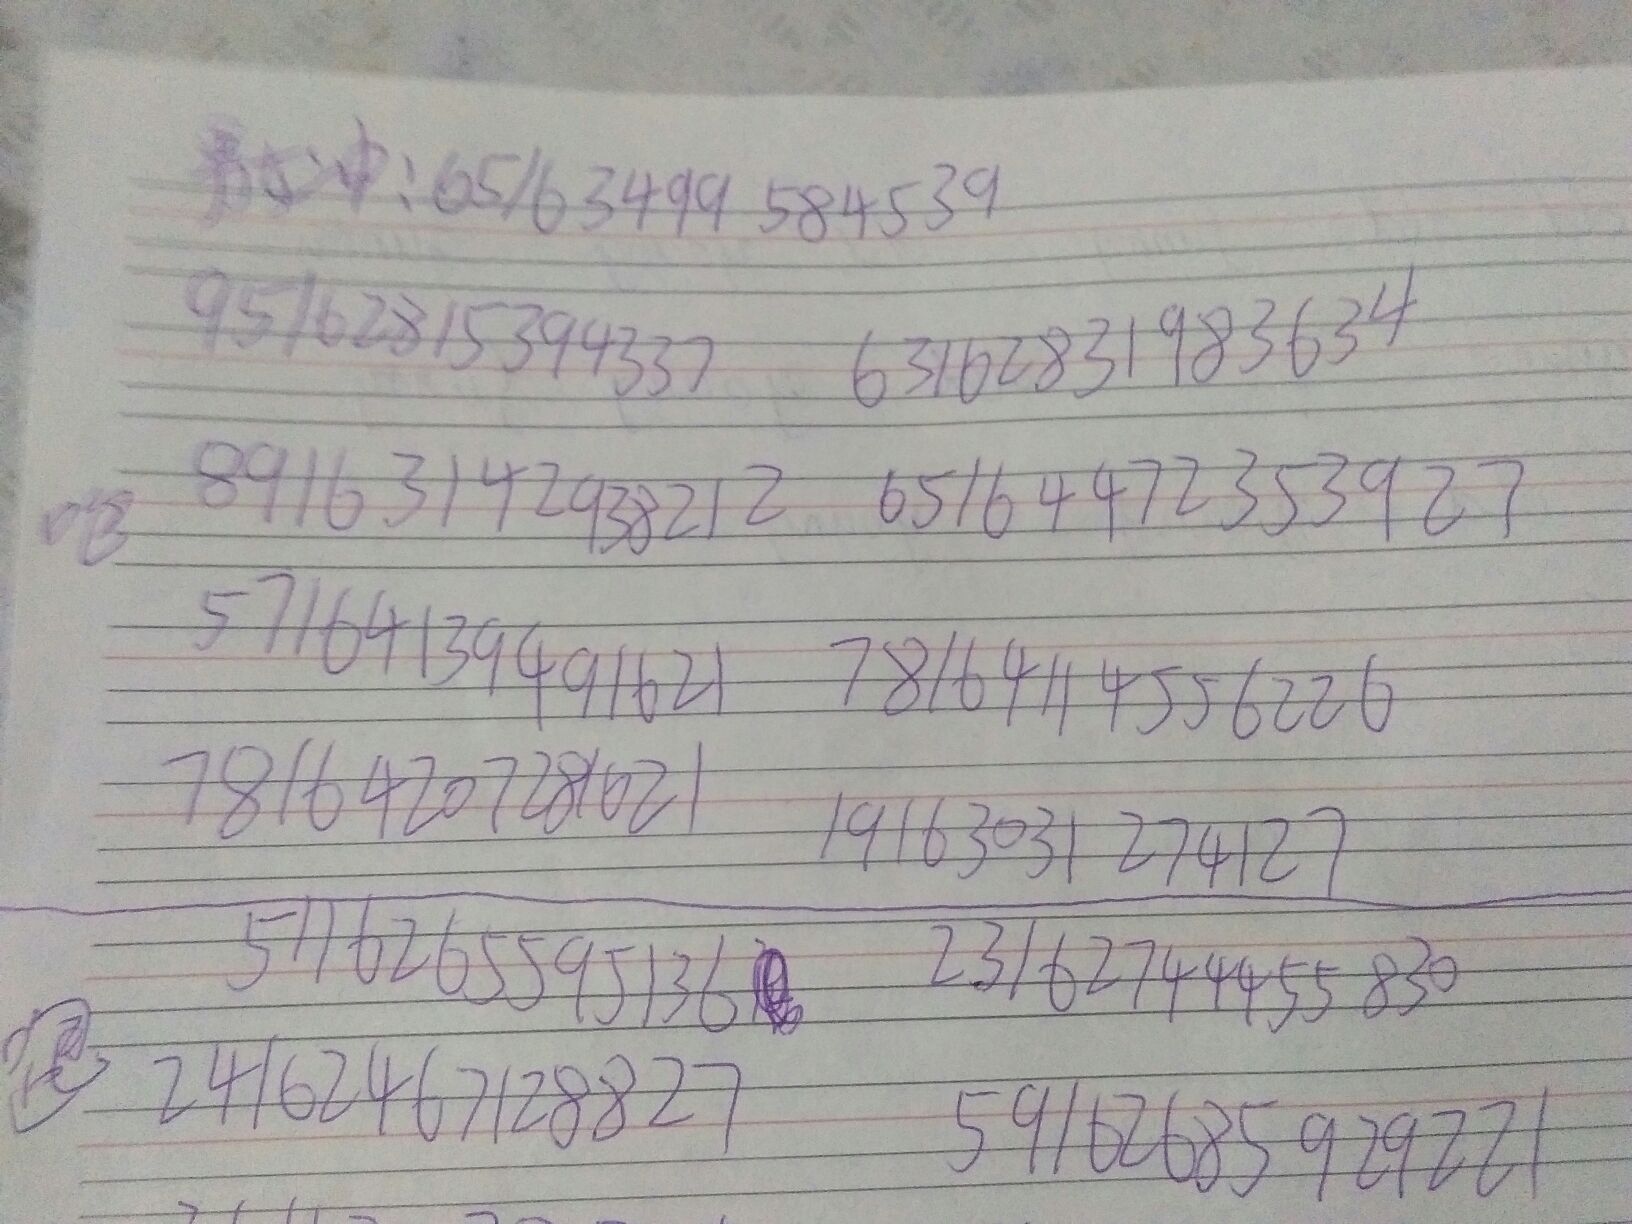 : 65163499 584539
951628315394337 63162831983634
891631429938212 651644723353927
571641394491621 781641145562226
781642072281021 19163031274127
51162655995136 231627444455830
241624671288 27 591626859 29221